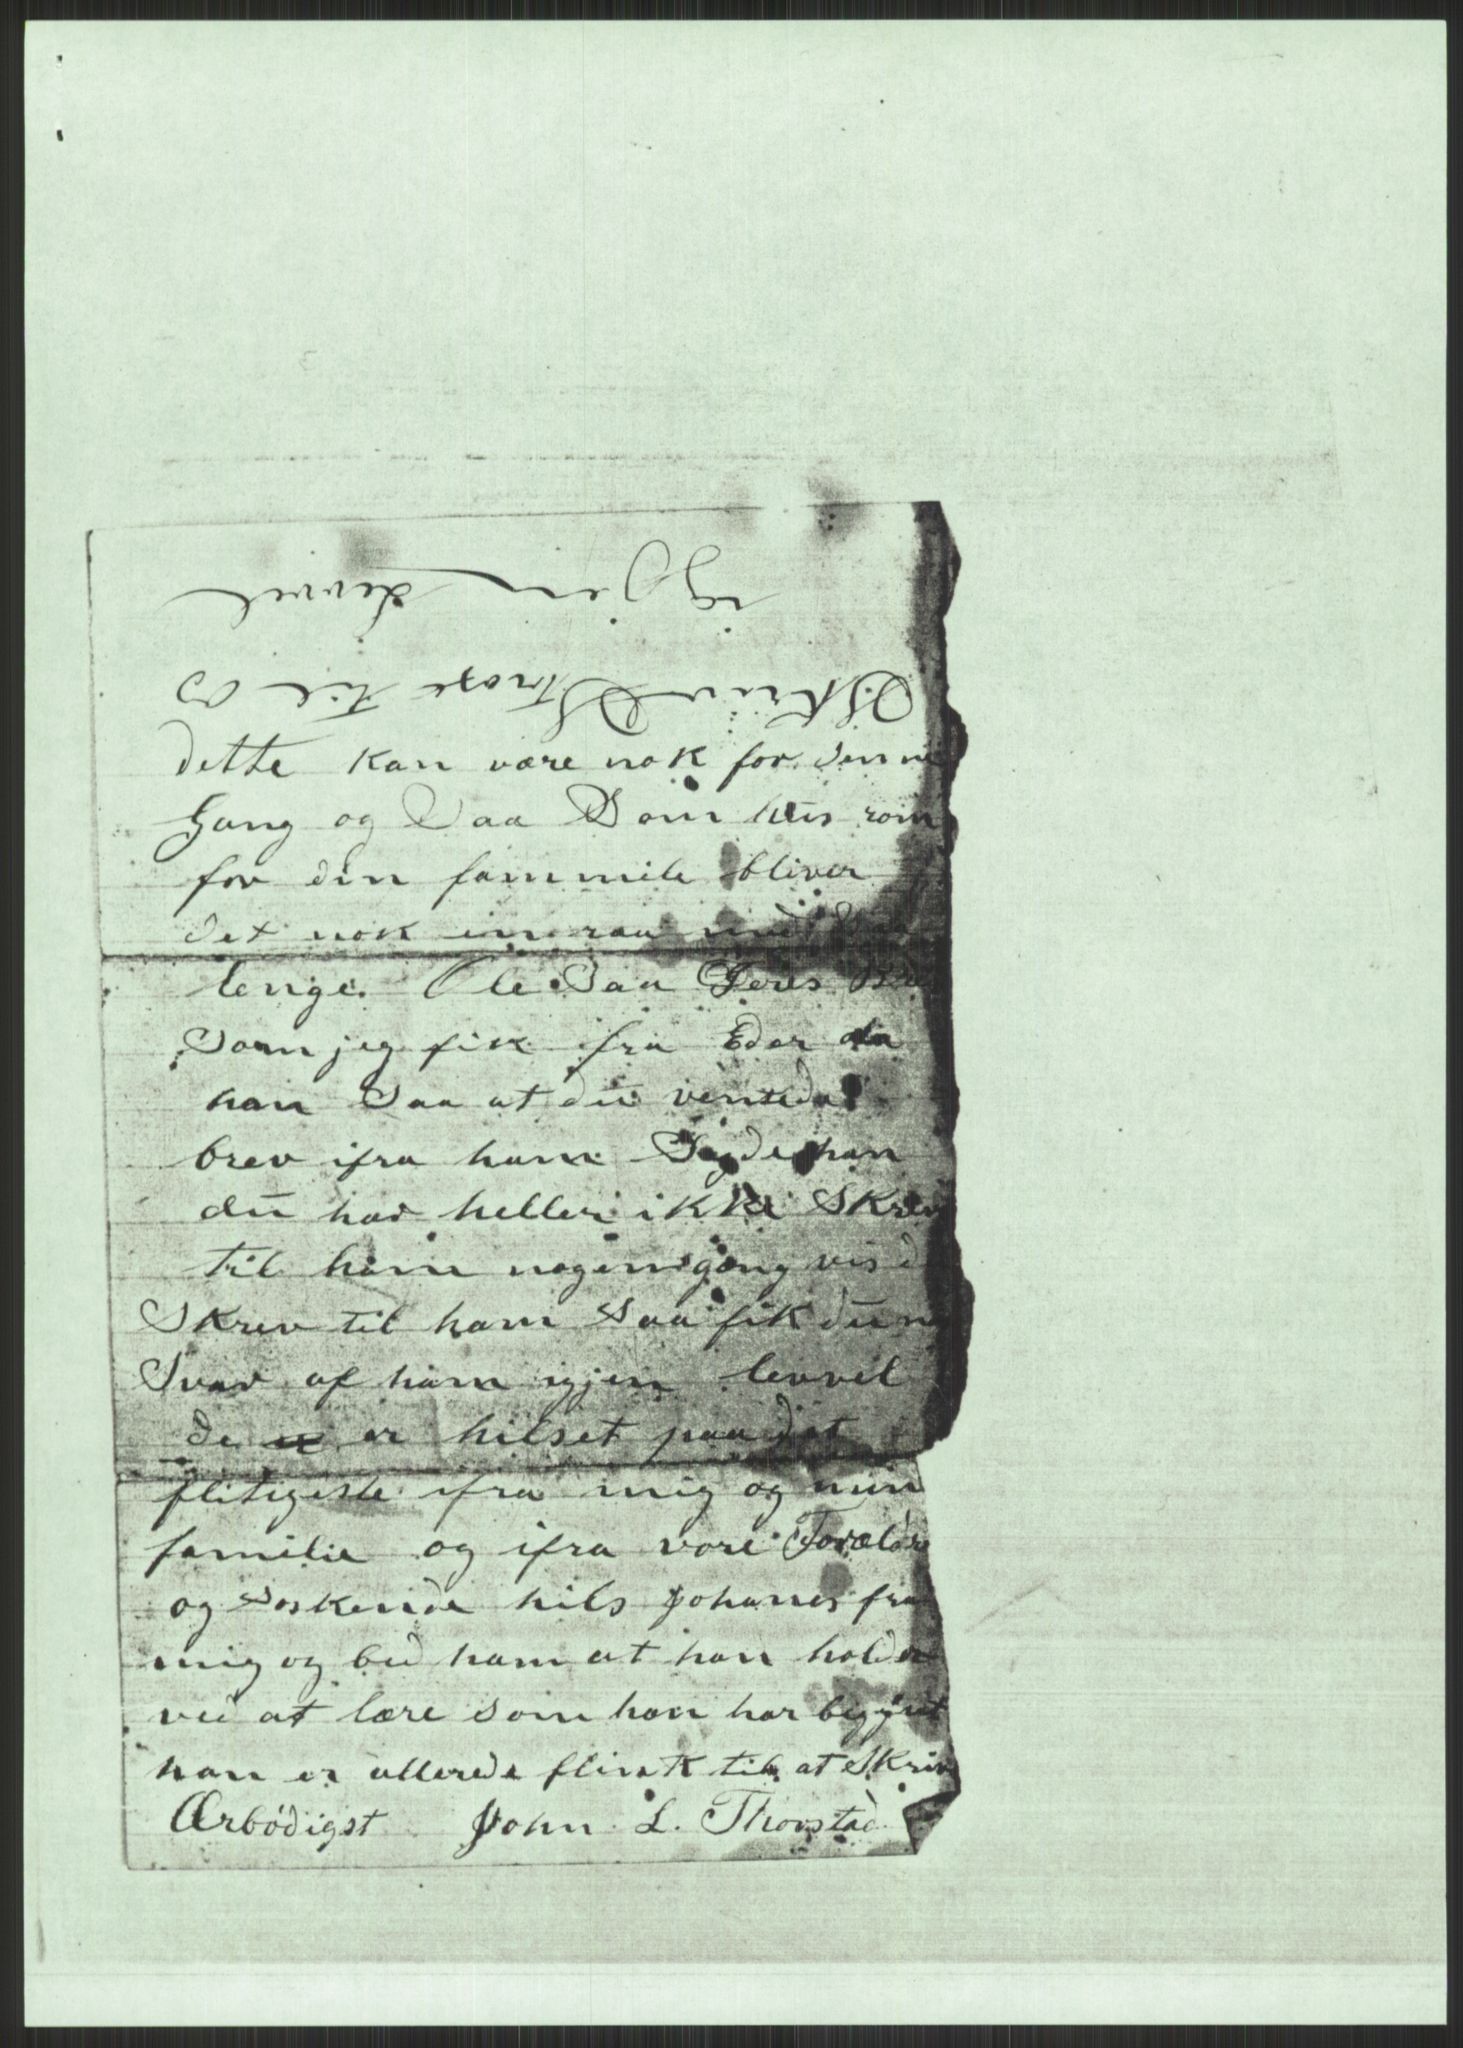 Skriv Straxt til os
igjen Levvel
dette kan være nok for denne
Gang og Saa Som hus rom
for din fammile bliver
det nok en raa med
lenge. Ole Saa Deres
Som jeg fik fra Eder da
han Saa at du ventede
brev ifra ham Sagde han
du har heller ikke Skrev
til ham nogen gang vis d
Skrev til ham Saa fik du n
Svar af ham igjen levvel
de er hilset paa det
flitigeste ifra mig og min
familie og ifra vore Forældre
og Søskende hils Johanes fra
mig og bed ham at han holder
ved at lære som han har begynt
han er allerede flink til at Skriv
Ærbødigst John L. Thorstad